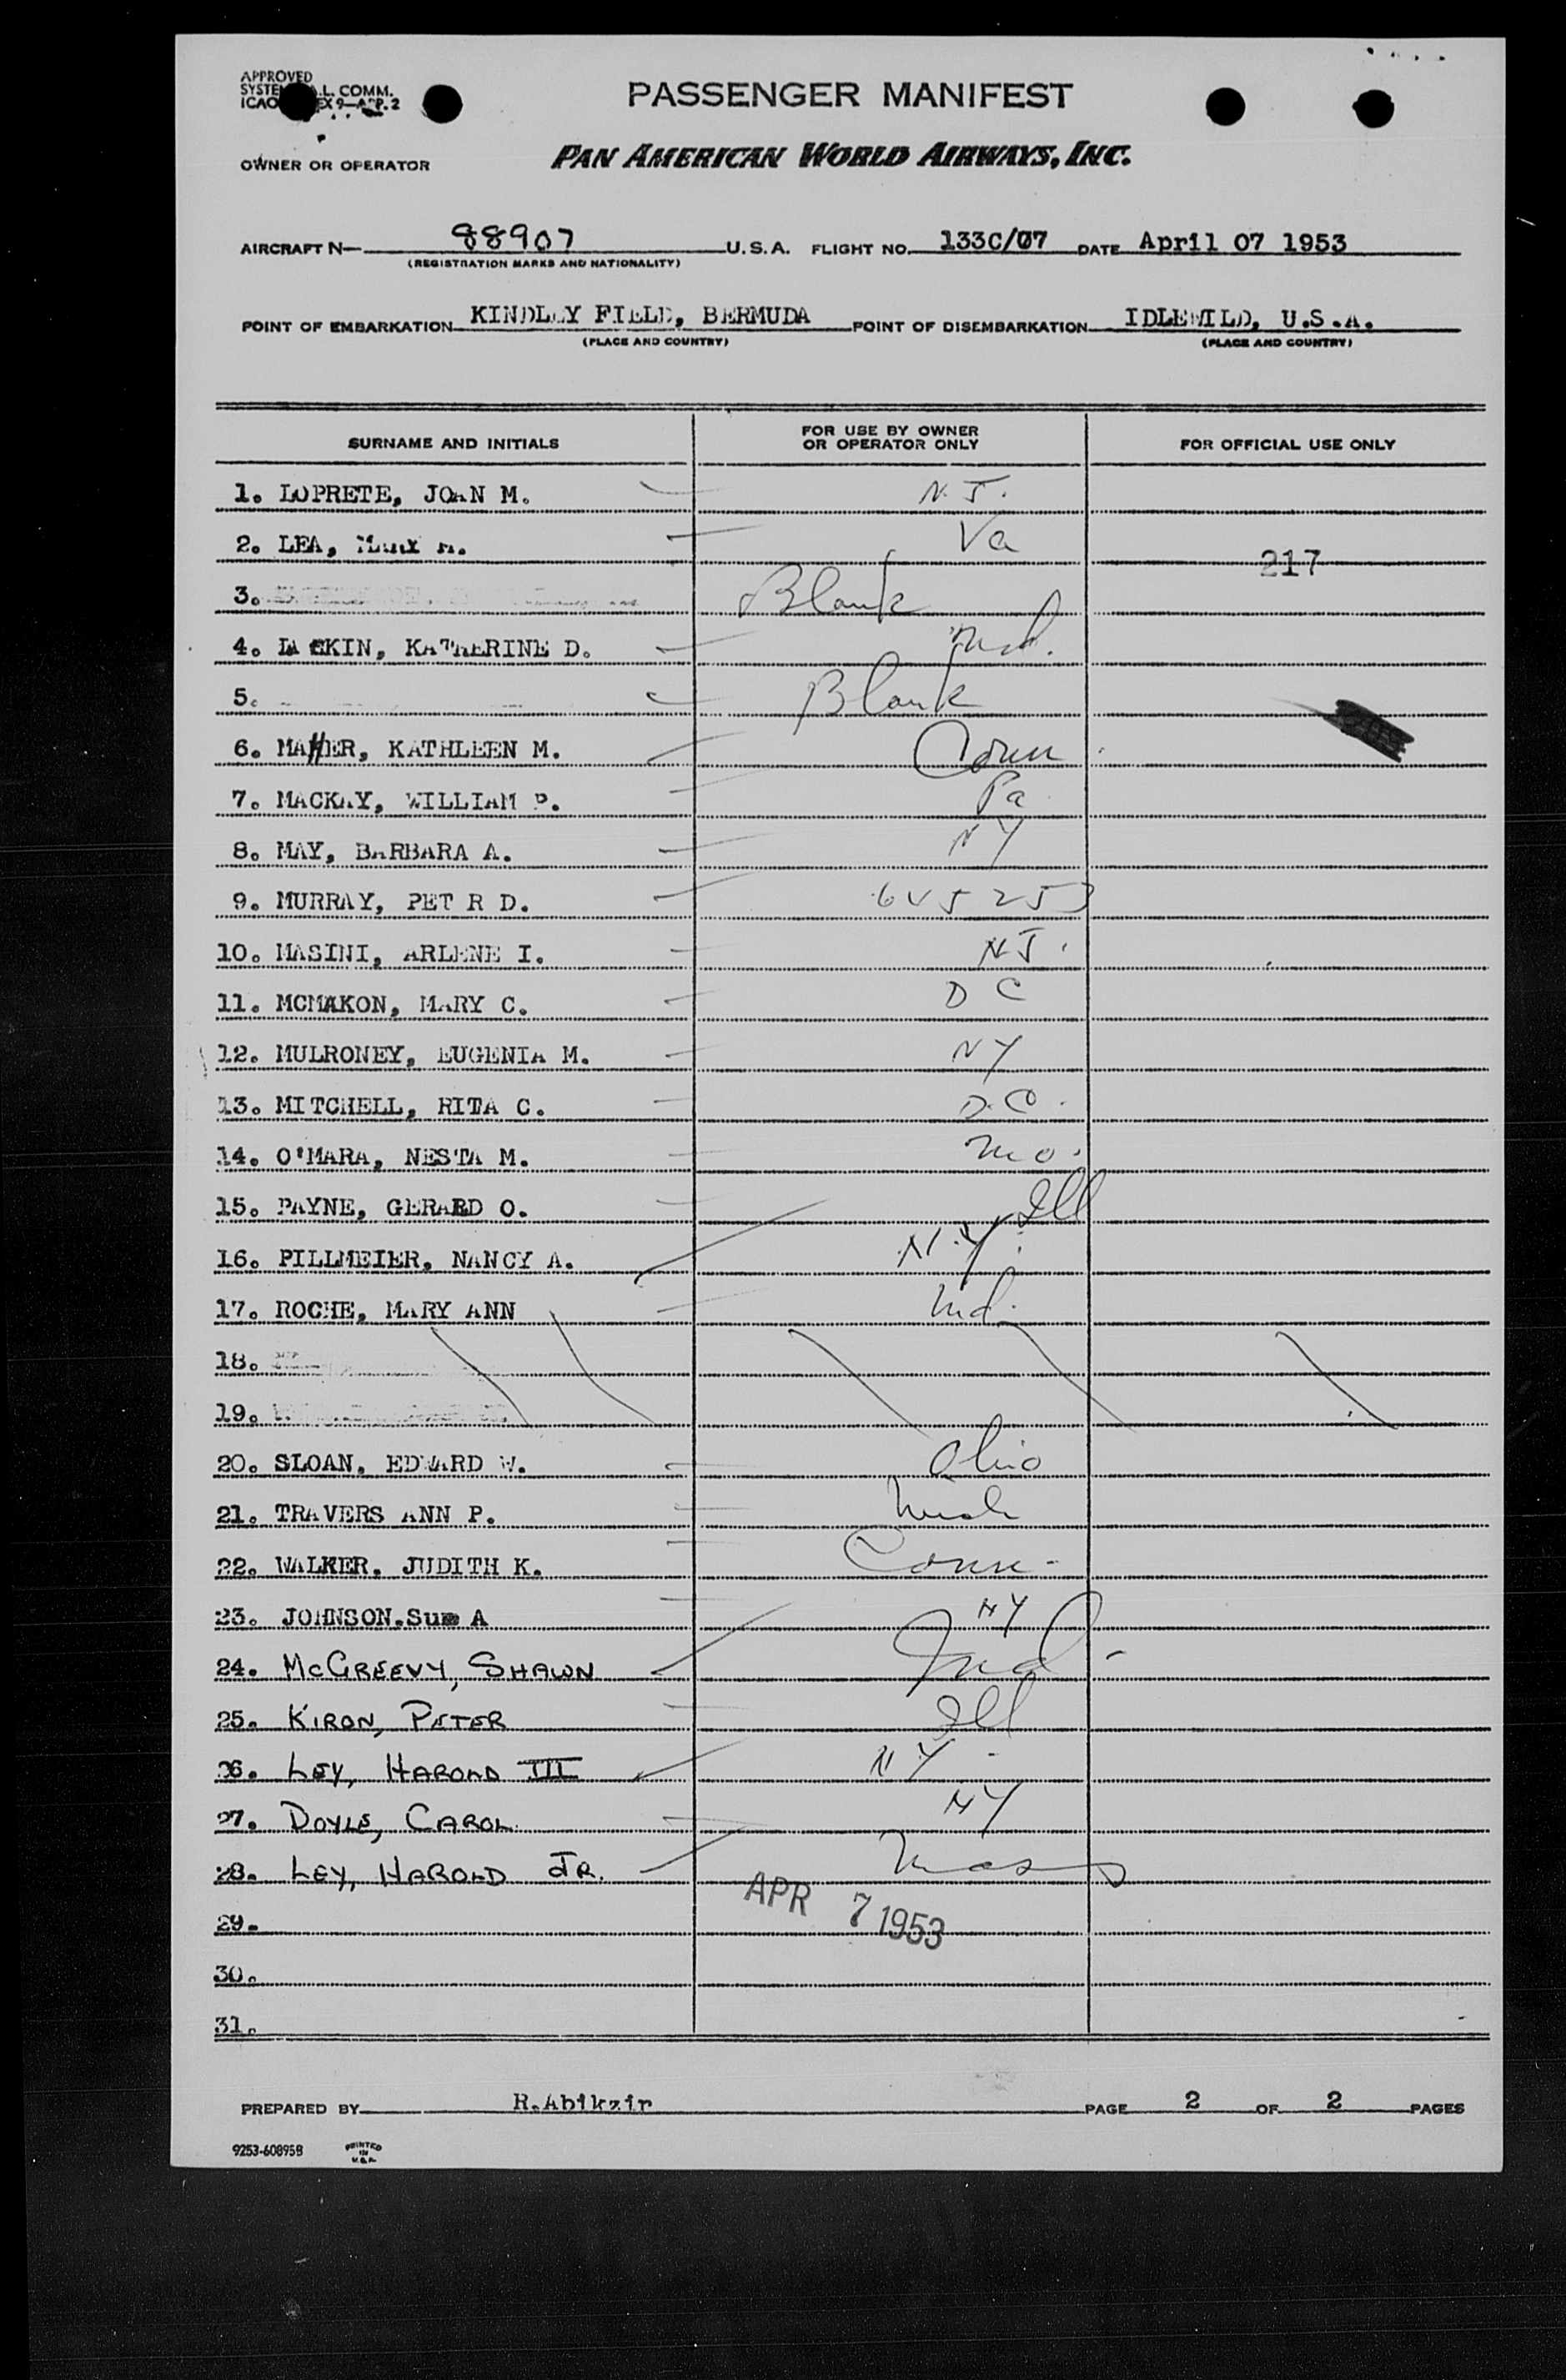 APPROVED
PASSENGER MANIFEST
L. COMM.
ICAO
OWNER OR OPERATOR PAN AMERICAN WORLD AIRWAYS, INC.
AIRCRAFT N— 88907 U.S.A. FLIGHT NO. 133C/07 DATE April 07 1953
(REGISTRATION MARKS AND NATIONALITY)
POINT OF EMBARKATION KINDLEY FIELD, BERMUDA POINT OF DISEMBARKATION IDLEWILD, U.S.A.
(PLACE AND COUNTRY) (PLACE AND COUNTRY)
SURNAME AND INITIALS FOR USE BY OWNER OR OPERATOR ONLY FOR OFFICIAL USE ONLY
1. LOPRETE, JOAN M. N.J.
2. LEA, Va
217
3. Blank
4. KATHERINE D. Md.
5. Blank
6. MAHER, KATHLEEN M. Conn
7. MACKAY, WILLIAM P. Pa
8. MAY, BARBARA A. NY
9. MURRAY, PET R D.
10. MASINI, ARLENE I. NJ.
11. MCMAKON, MARY C. DC
12. MULRONEY, EUGENIA M. NY
13. MITCHELL, RITA C. D.C.
14. O'MARA, NESTA M. Mo.
15. PAYNE, GERARD O. Ill
16. PILLMEIER, NANCY A. N.Y.
17. ROCHE, MARY ANN Md.
18.
19.
20. SLOAN, EDWARD W. Ohio
21. TRAVERS ANN P.
22. WALKER, JUDITH K. Conn-
23. JOHNSON. A NY
24. McGREEVY, SHAWN Ind-
25. KIRON, PETER Ill
26. LEY, HAROLD III NY-
27. DOYLE, CAROL NY
28. LEY, HAROLD JR. Mass
APR 7 1953
29.
30.
31.
PREPARED BY R.Abikzir PAGE 2 OF 2 PAGES
9253-60895B PRINTED IN U.S.A.